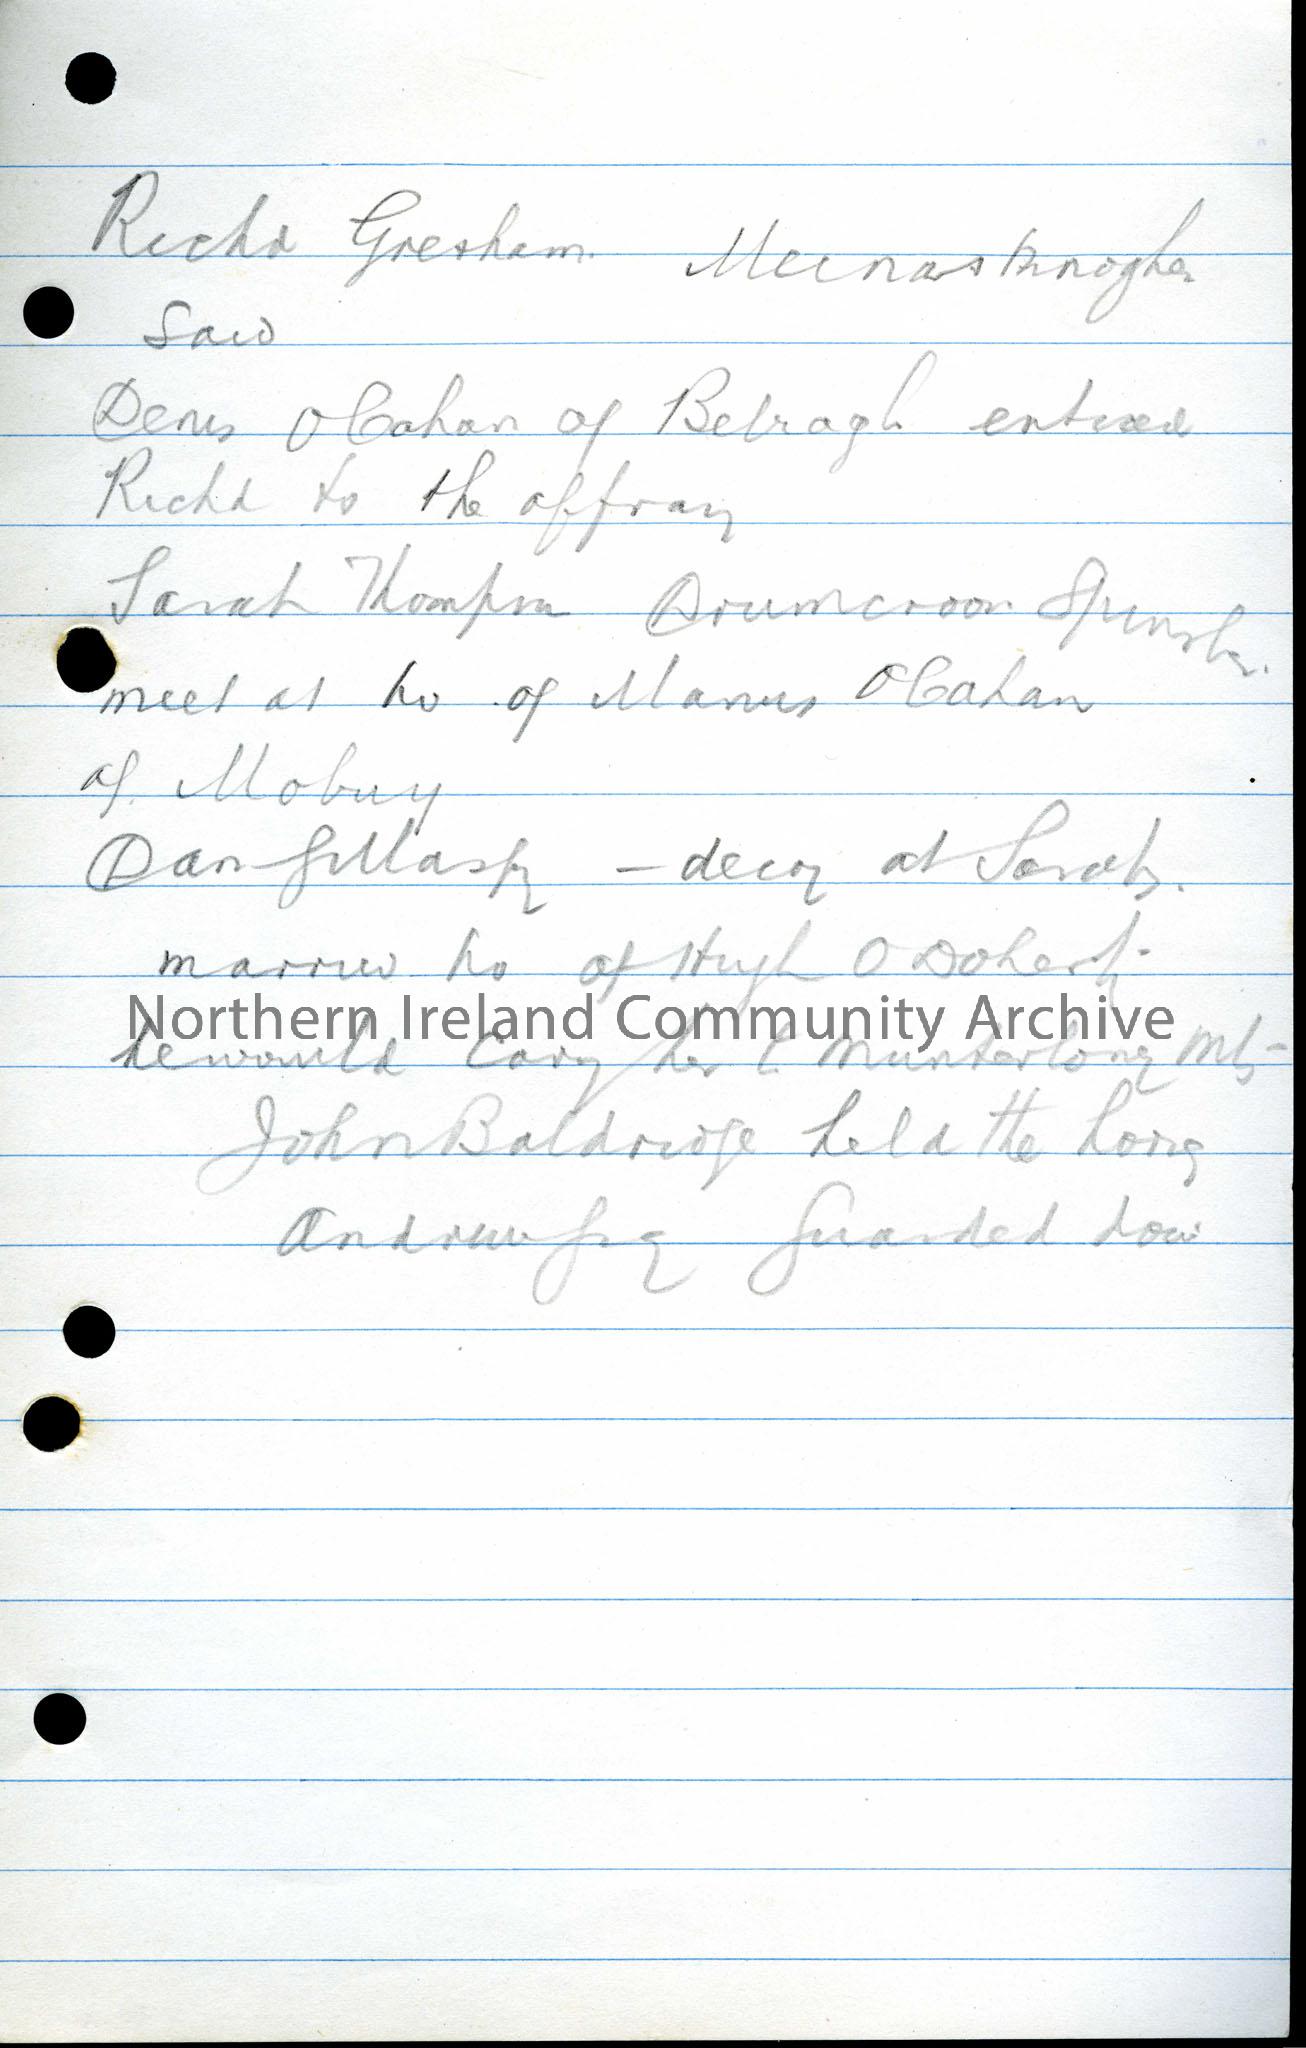 Richd Gresham. 
said
Denis O Cahan of Belragh enticed
Richd to the affray
Sarah Thompson Drumcroon Spinster.
meet at ho of Manus O Cahan
of Mobuy
Dan Gillaspy – decoy at Sarahs.
married ho of Hugh O Doherty
Northern Ireland Community Archive
he would Cary her Munterlony Mts
John Baldridge held the
Andrew guarded